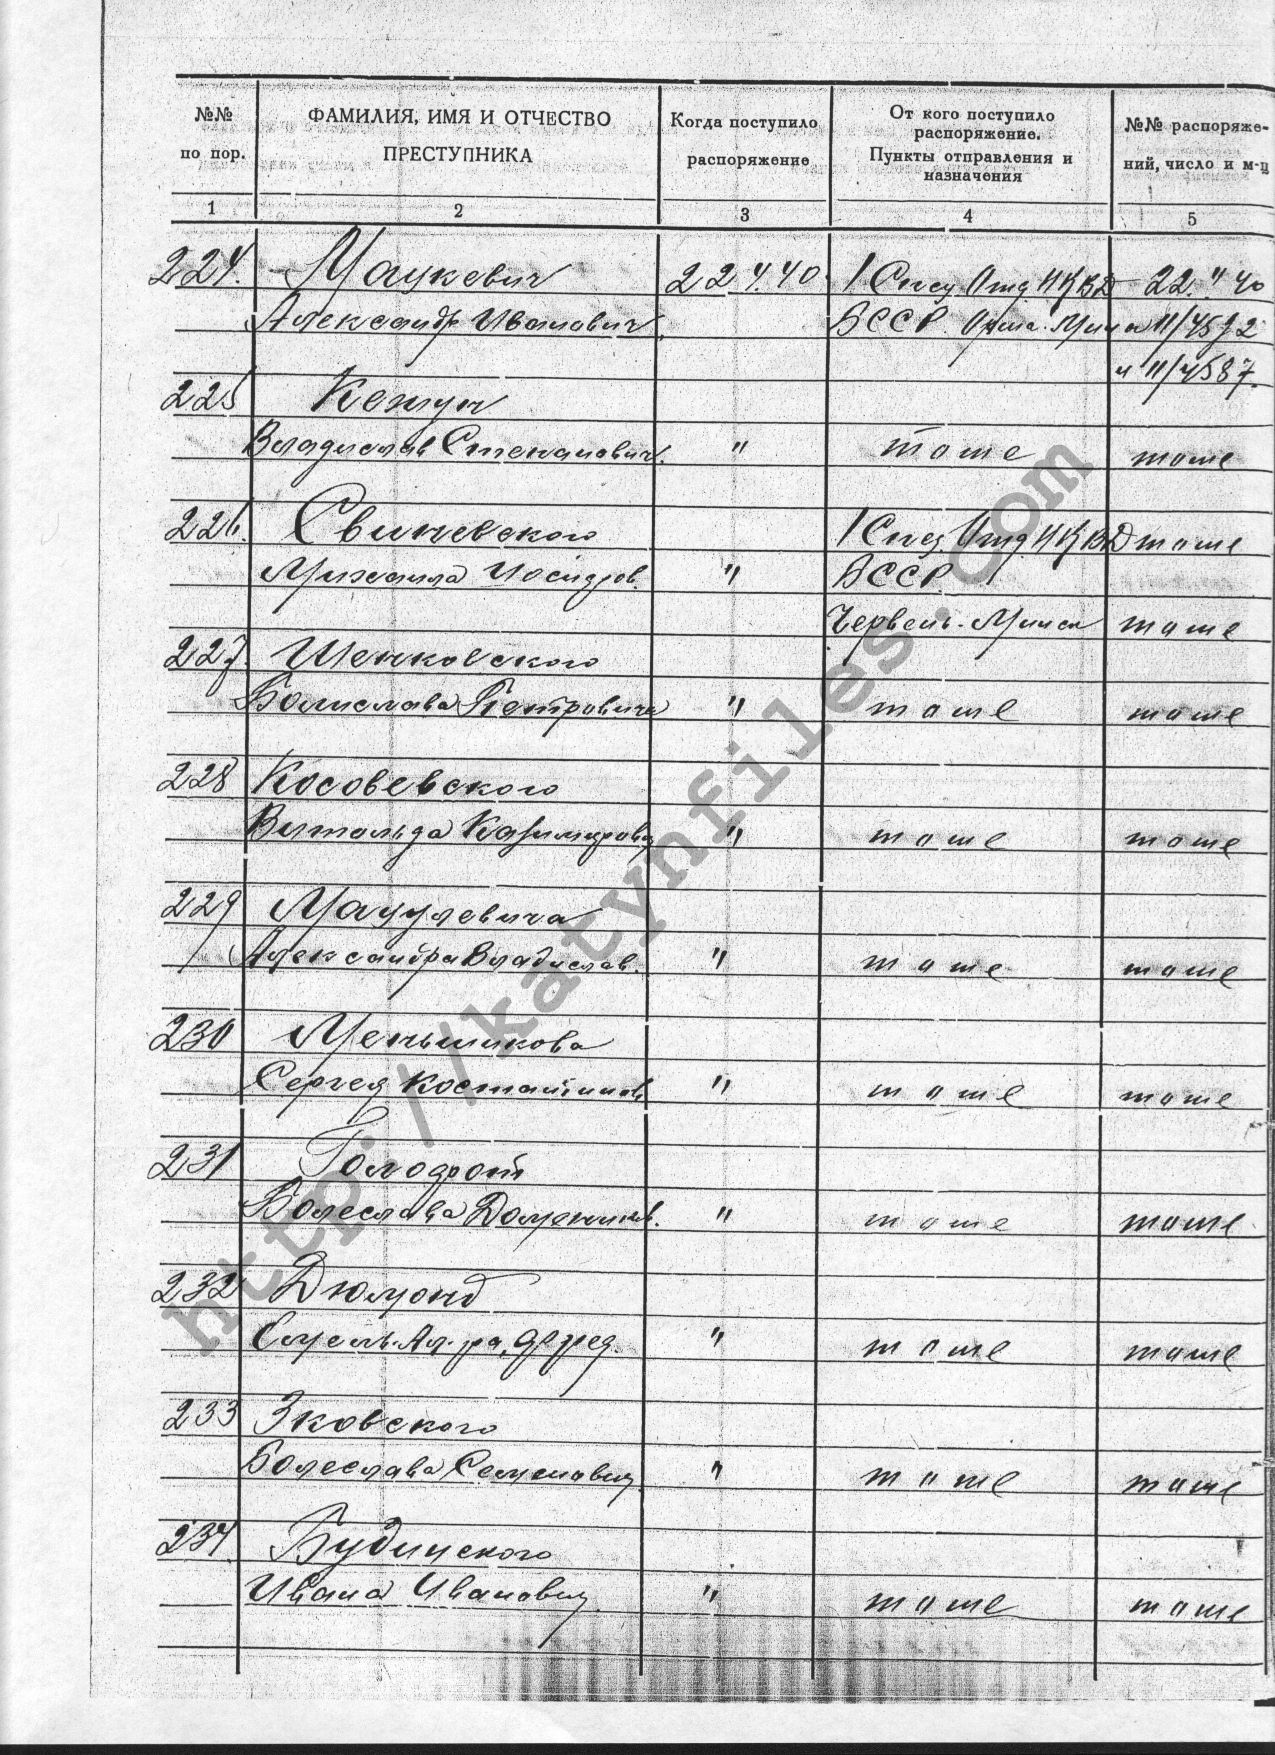 №№ по пор.
ФАМИЛИЯ, ИМЯ И ОТЧЕСТВО ПРЕСТУПНИКА
Когда поступило распоряжение
От кого поступило распоряжение.
Пункты отправления и назначения
№№ распоряже-
ний, число и м-ц
1 2 3 4 5
224. Мацкевич 22 4.40 1 Спец Отд НКВД 22."40
Александр Иванович БССР. Минск 11/4592
и 11/4587.
225
Владислав Степанович " тоже тоже
226. Свиневского 1 Спец. Отд НКВД тоже
Михаила Иосифов. " БССР
Червень-Минск тоже
227 Шенковского
Болислава Петровича " тоже тоже
228 Косовевского
Витольда Казимирович " тоже тоже
229 Мацулевича
Александра Владислав. " тоже тоже
230 Меньшикова
Сергея Костантинов " тоже тоже
231
Болеслава Доменик. " тоже тоже
232 Дюмонд
" тоже тоже
233 Зковского
Болеслава Семенович " тоже тоже
234. Будинского
Ивана Иванович " тоже тоже
http://katynfiles.com